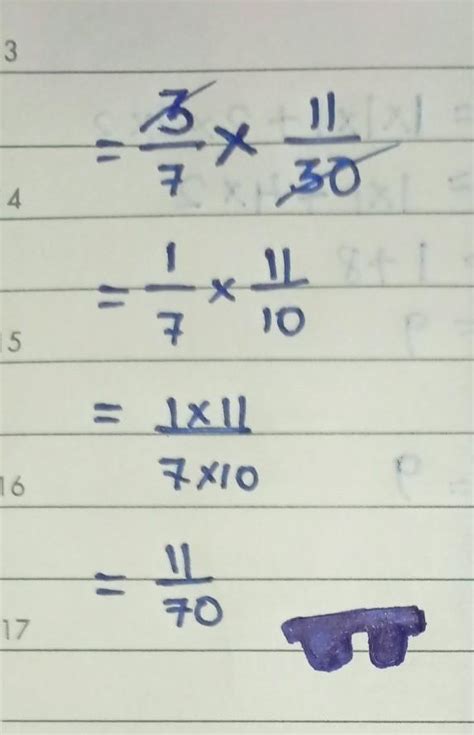 3
= 3/7 × 11/30
4
= 1/7 × 11/10
5
= 1×11/7×10
16
= 11/70
17